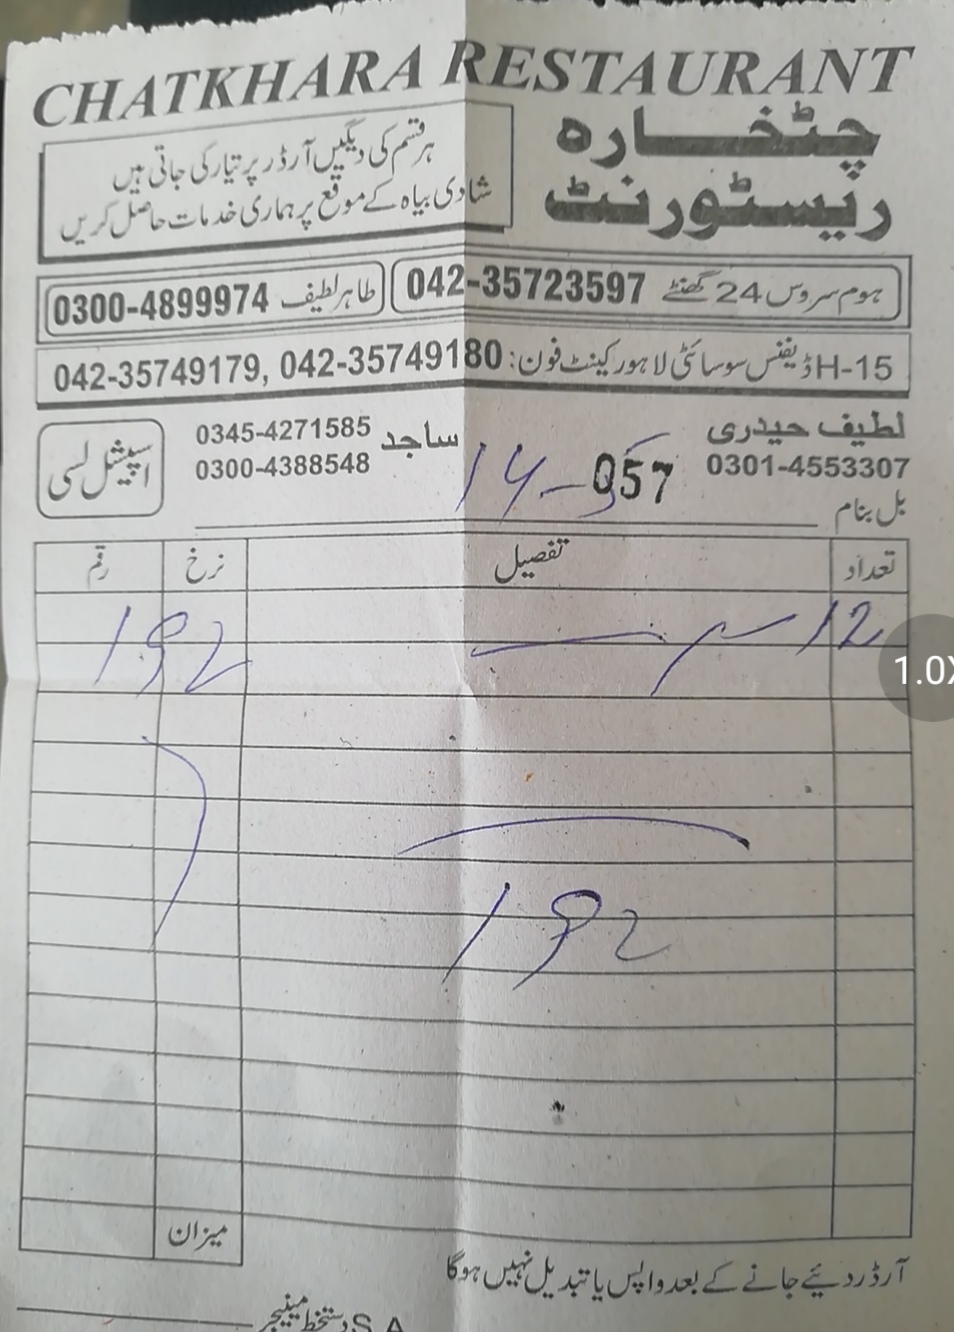 CHATKHARA RESTAURANT
چٹخارہ
ریسٹورنٹ
ہر قسم کی دیگیں آرڈر پر تیار کی جاتی ہیں
شادی بیاہ کے موقع پر ہماری خدمات حاصل کریں
ہوم سروس 24 گھنٹے 042-35723597
طاہر لطیف 0300-4899974
H-15 ڈیفنس سوسائٹی لاہور کینٹ فون: 042-35749180, 042-35749179
لطیف حیدری
0301-4553307
ساجد 0345-4271585
0300-4388548
اسپیشل لسی
057
بل بنام
تعداد تفصیل نرخ رقم
12 192
192
میزان
آرڈر دئیے جانے کے بعد واپس یا تبدیل نہیں ہوگا
دستخط مینیجر
S.A
1.0X